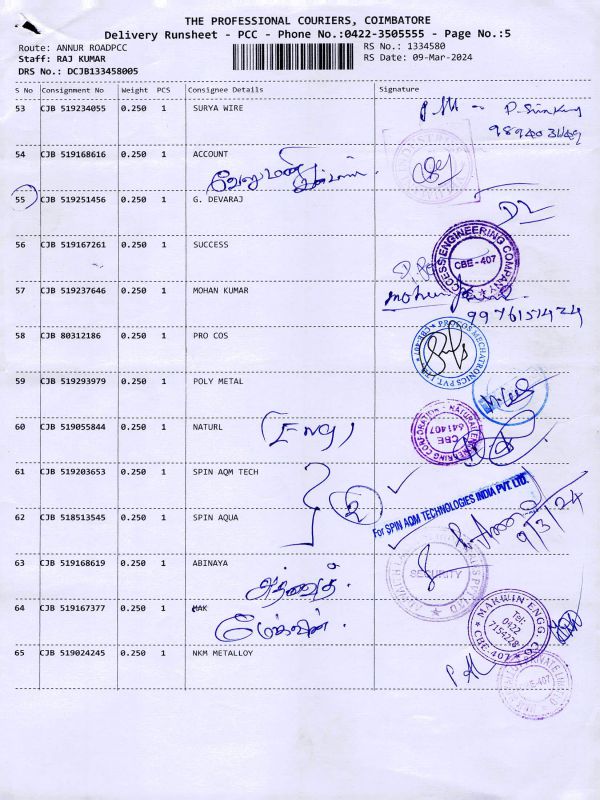 THE PROFESSIONAL COURIERS, COIMBATORE
Delivery Runsheet - PCC - Phone No.:0422-3505555 - Page No.:5
Route: ANNUR ROADPCC
RS No.: 1334580
Staff: RAJ KUMAR
RS Date: 09-Mar-2024
DRS No.: DCJB133458005
S No Consignment No Weight PCS Consignee Details Signature
53 CJB 519234055 0.250 1 SURYA WIRE
54 CJB 519168616 0.250 1 ACCOUNT
வேலுமணி
55 CJB 519251456 0.250 1 G. DEVARAJ
56 CJB 519167261 0.250 1 SUCCESS
SUCCESS ENGINEERING COMPANY
CBE-407
57 CJB 519237646 0.250 1 MOHAN KUMAR
9976151424
58 CJB 80312186 0.250 1 PRO COS
PROCOS MECHATRONICS PVT. LTD. CBE-407
59 CJB 519293979 0.250 1 POLY METAL
60 CJB 519055844 0.250 1 NATURL (ENG)
NATURAL ENGINEERING CORPORATION
CBE
641407
61 CJB 519203653 0.250 1 SPIN AQM TECH
2
For SPIN AQM TECHNOLOGIES INDIA PVT. LTD.
62 CJB 518513545 0.250 1 SPIN AQUA
9/3/24
63 CJB 519168619 0.250 1 ABINAYA
SECURITY
64 CJB 519167377 0.250 1 MAK
மேக்வின்
MAKWIN ENGG. CO
Tel:
0422
7154228
CBE-407
65 CJB 519024245 0.250 1 NKM METALLOY